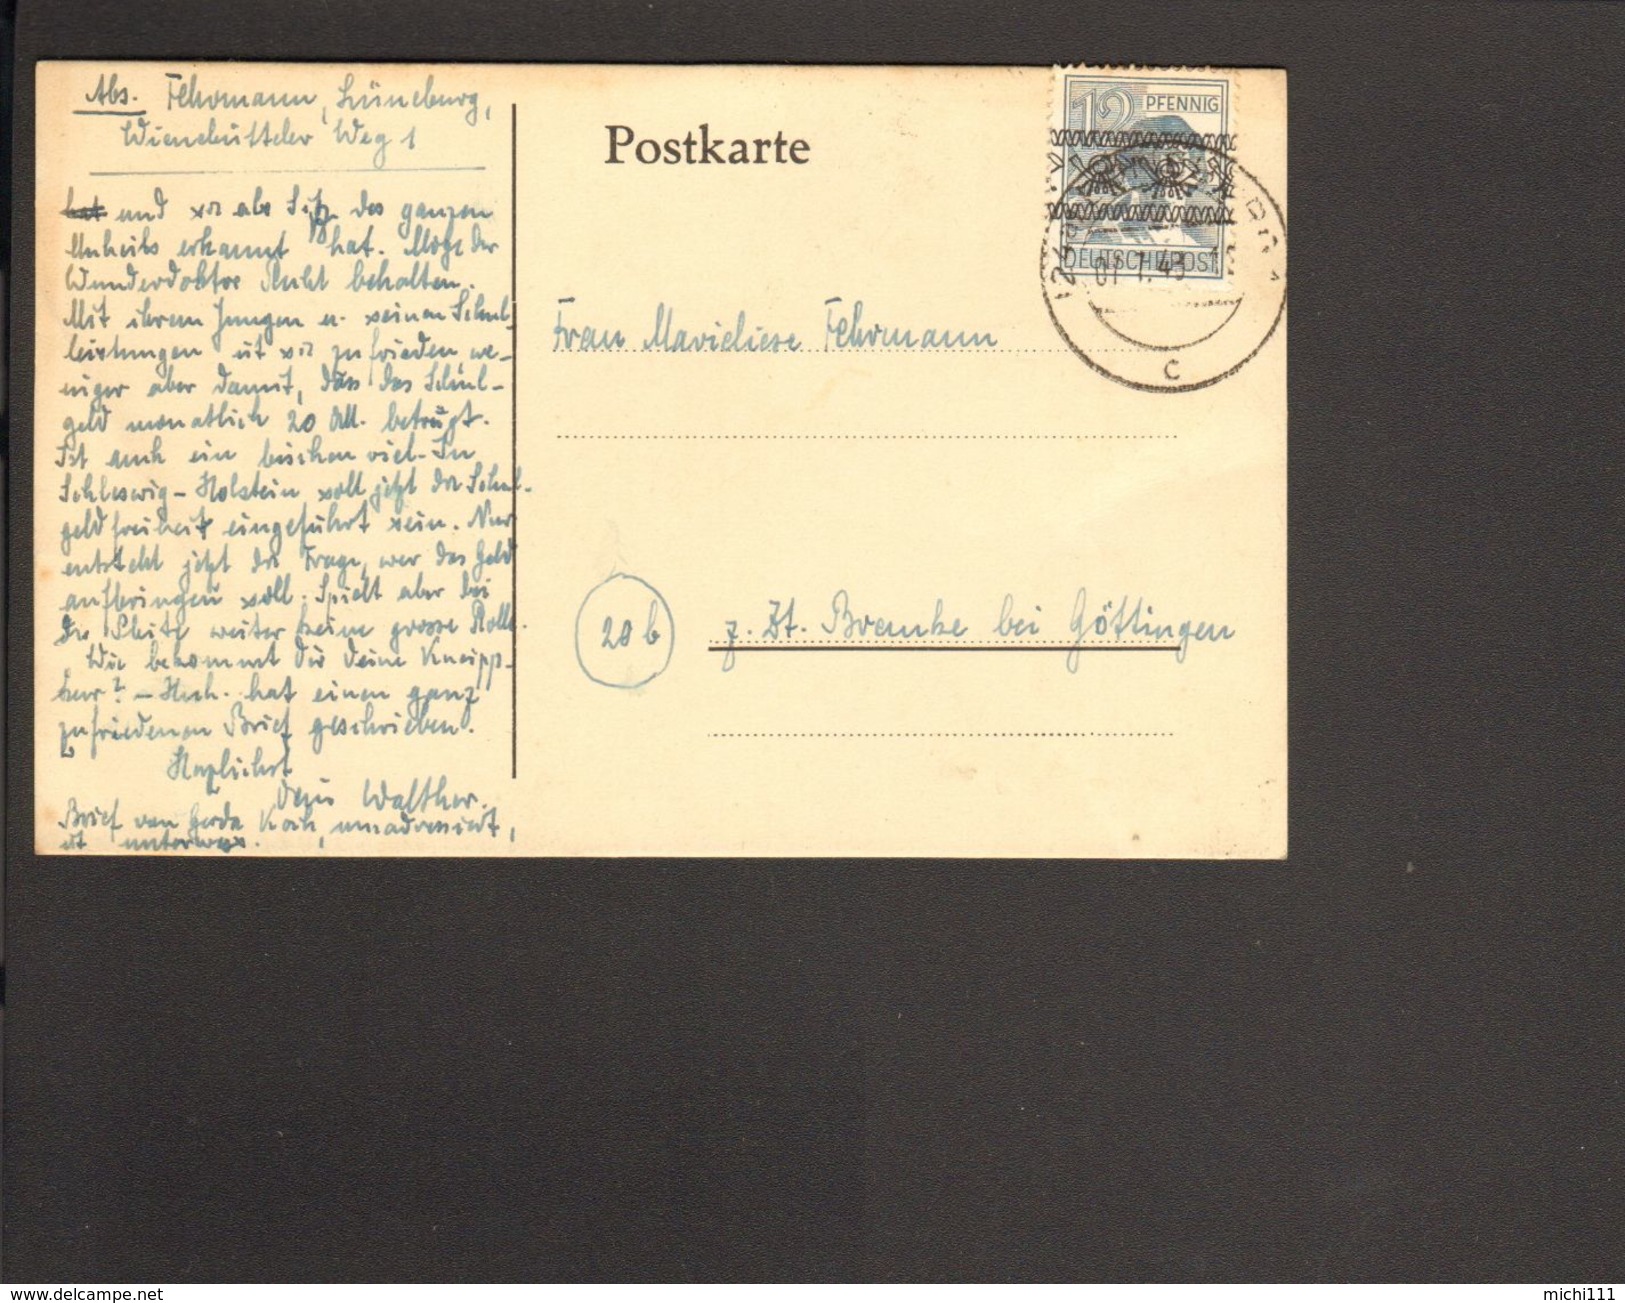 Abs. Fehrmann, Lüneburg,
Wienebütteler Weg 1
hat und sie als Sitz des ganzen
Unheils erkannt hat. Möge der
Wunderdoktor Recht behalten.
Mit ihrem Jungen u. seinen Schul-
leistungen ist sie zufrieden, we-
niger aber damit, dass das Schul-
geld monatlich 20 M. beträgt.
Ist auch ein bischen viel. In
Schleswig-Holstein soll jetzt die Schul-
geldfreiheit eingeführt sein. Nur
entsteht jetzt die Frage, wer das Geld
aufbringen soll. Spielt aber bei
der Pleite weiter keine grosse Rolle.
Wie bekommt Dir Deine Kneipp-
kur? - hat einen ganz
zufriedenen Brief geschrieben.
Herzlichst
Dein Walther.
Brief von Gerda Koch, umadressiert,
ist unterwegs.
Postkarte
12 PFENNIG
DEUTSCHE POST
07.7.48
c
Frau Marieliese Fehrmann
20b
z. Zt. Bremke bei Göttingen
www.delcampe.net
michi111